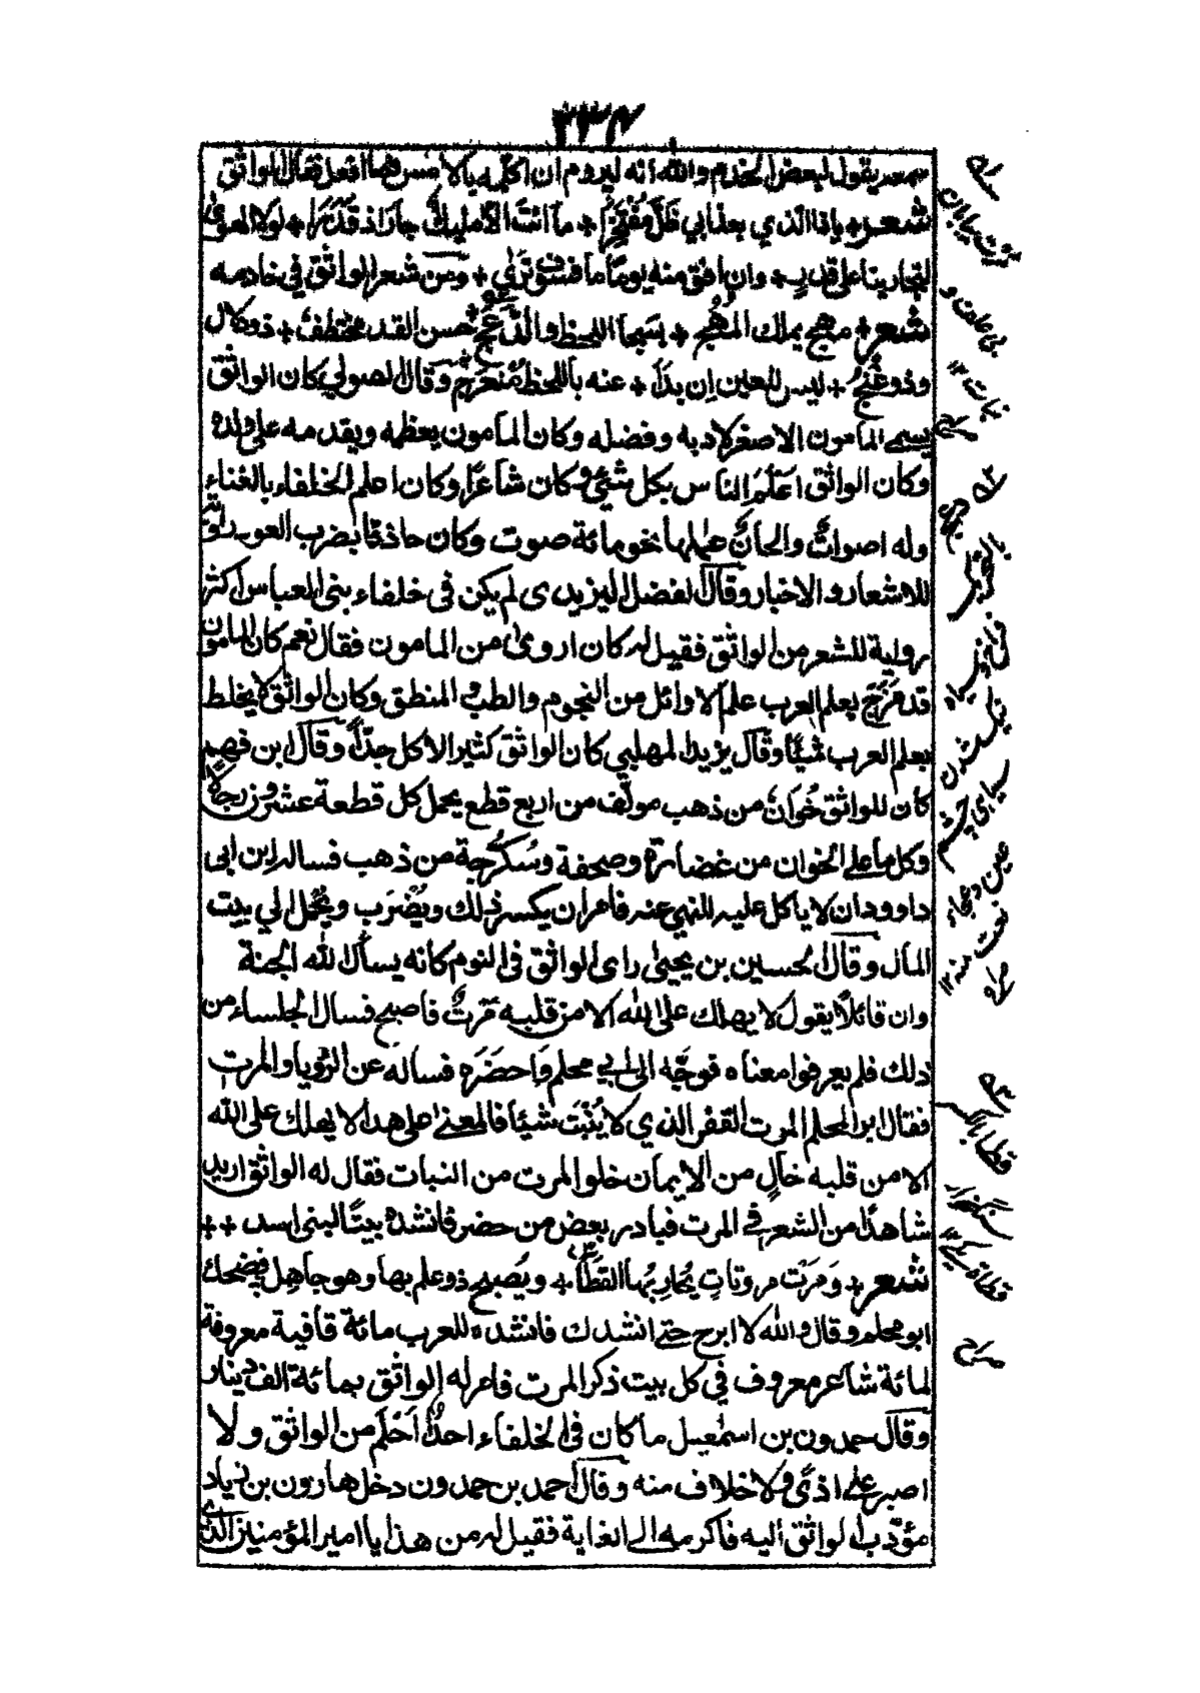 ٣٣٤
سمعه يقول لبعض الخدم والله انه ليروم ان اكلمه بالامس فما افعل فقال الواثق
شعر + ياذا الذي بعذابي ظلّ مُفْتَخِرًا + ما انت الا مليك جارَ اذ قَدَرَا + لولا الهوى
لتجارينا على قدرٍ + وان افق منه يومًا ما فسوف ترى + ومن شعر الواثق في خادمه
شعر + مهج يملك المُهَج + بسجا اللحظ والدَّعَج + حسن القد مختطف + ذو دلال
وذو غُنُج + ليس للعين ان بدا + عنه باللحظ مُنْعَرَج + وقال الصولي كان الواثق
يسمى المأمون الاصغر لادبه وفضله وكان المأمون يعظمه ويقدمه على ولده
وكان الواثق اعلَمَ الناس بكل شيئ وكان شاعرًا وكان اعلم الخلفاء بالغناء
وله اصواتٌ والحانٌ عملها نحو مائة صوت وكان حاذقا بضرب العود راوية
للاشعار والاخبار وقال الفضل اليزيدى لم يكن فى خلفاء بنى العباس اكثر
رواية للشعر من الواثق فقيل له كان اروى من المامون فقال نعم كان المامون
قد مَزَجَ بعلم العرب علم الاوائل من النجوم والطب والمنطق وكان الواثق لا يخلط
بعلم العرب شيئًا وقال يزيد المهلبي كان الواثق كثير الاكل جدًّا وقال ابن فهم
كان للواثق خُوَانٌ من ذهب مولّف من اربع قطع يحمل كل قطعة عشرون رجلًا
وكل ما على الخوان من غضارة وصحفة وسُكرُّجة من ذهب فساله ابن ابى
داوود ان لا ياكل عليه للنهي عنه فامر ان يكسر ذلك ويُضْرَب ويُحمل الي بيت
المال وقال الحسين بن يحيى راى الواثق فى النوم كانه يسأل الله الجنة
وان قائلًا يقول لا يهلك على الله الا من قلبه مَرْتٌ فاصبح فسال الجلساء من
ذلك فلم يعرفوا معناه فوجّه الى ابي محلم وَاحضَرَه فساله عن الرؤيا والمرت
فقال ابو المحلم المرت القفر الذي لا يُنْبِتَ شيئا فالمعنى على هذا لا يهلك على الله
الا من قلبه خالٍ من الايمان خلو المرت من النبات فقال له الواثق اريد
شاهدًا من الشعر في المرت فبادر بعض من حضر فانشده بيتًا لبنى اسد ++
شعر + وَمَرْت مروتاتٍ يُحار بها القَطَا + ويُصبح ذو علم بها وهو جاهل فضحك
ابو محلم وقال والله لا ابرح حتى انشدك فانشده للعرب مائة قافية معروفة
لمائة شاعر معروف في كل بيت ذكر المرت فامر له الواثق بمائة الف دينار
وقال حمدون بن اسمعيل ما كان فى الخلفاء احدٌ اَحْلَم من الواثق ولا
اصبر على اذًى ولا خلاف منه وقال احمد بن حمدون دخل هارون بن زياد
مؤدّب الواثق اليه فاكرمه الى الغاية فقيل له من هذا يا امير المؤمنين الذي
صراح